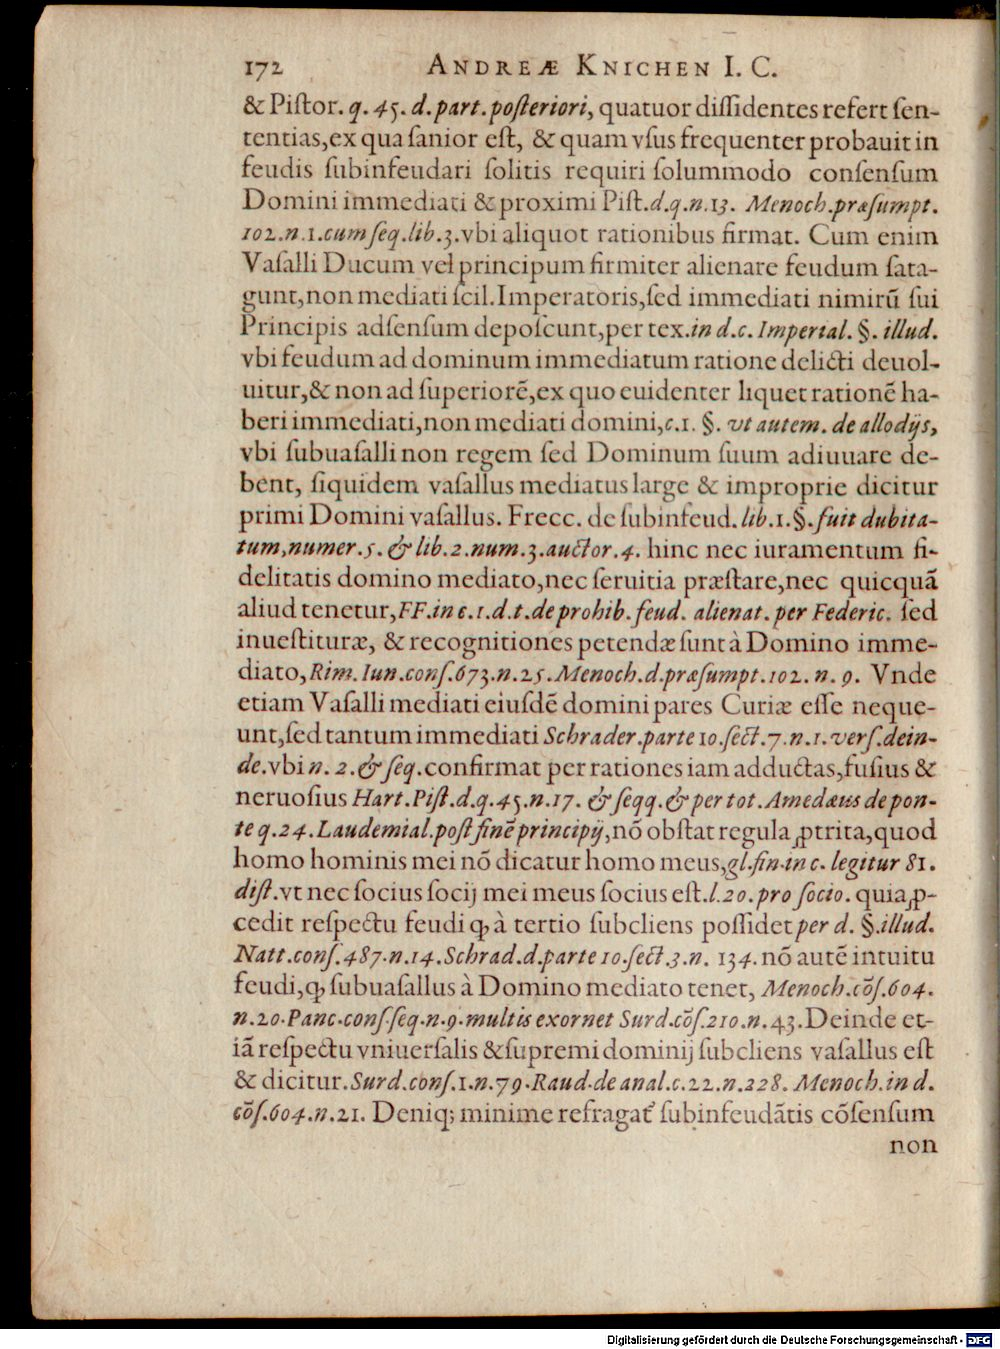 172 ANDREÆ KNICHEN I. C.
& Piſtor. q. 45. d. part. poſteriori, quatuor diſſidentes refert ſen-
tentias, ex qua ſanior eſt, & quam vſus frequenter probauit in
feudis ſubinfeudari ſolitis requiri ſolummodo conſenſum
Domini immediati & proximi Piſt. d. q. n. 13. Menoch. præſumpt.
102. n. 1. cum ſeq. lib. 3. vbi aliquot rationibus firmat. Cum enim
Vaſalli Ducum vel principum firmiter alienare feudum ſata-
gunt, non mediati ſcil. Imperatoris, ſed immediati nimirū ſui
Principis adſenſum depoſcunt, per tex. in d. c. Imperial. §. illud.
vbi feudum ad dominum immediatum ratione delicti deuol-
uitur, & non ad ſuperiorē, ex quo euidenter liquet rationē ha-
beri immediati, non mediati domini, c. 1. §. vt autem. de allodijs,
vbi ſubuaſalli non regem ſed Dominum ſuum adiuuare de-
bent, ſiquidem vaſallus mediatus large & improprie dicitur
primi Domini vaſallus. Frecc. de ſubinfeud. lib. 1. §. fuit dubita-
tum, numer. 5. & lib. 2. num. 3. auctor. 4. hinc nec iuramentum fi-
delitatis domino mediato, nec ſeruitia præſtare, nec quicquā
aliud tenetur, FF. in c. 1. d. t. de prohib. feud. alienat. per Federic. ſed
inueſtituræ, & recognitiones petendæ ſunt à Domino imme-
diato, Rim. Iun. conſ. 673. n. 25. Menoch. d. præſumpt. 102. n. 9. Vnde
etiam Vaſalli mediati eiuſdē domini pares Curiæ eſſe neque-
unt, ſed tantum immediati Schrader. parte 10. ſect. 7. n. 1. verſ. dein-
de. vbi n. 2. & ſeq. confirmat per rationes iam adductas, fuſius &
neruoſius Hart. Piſt. d. q. 45. n. 17. & ſeqq. & per tot. Amedæus de pon-
te q. 24. Laudemial. poſt finē principij, nō obſtat regula ꝓtrita, quod
homo hominis mei nō dicatur homo meus, gl. fin. in c. legitur 81.
diſt. vt nec ſocius ſocij mei meus ſocius eſt. l. 20. pro ſocio. quia ꝓ-
cedit reſpectu feudi ꝙ à tertio ſubcliens poſſidet per d. §. illud.
Natt. conſ. 487. n. 14. Schrad. d. parte 10. ſect. 3. n. 134. nō autē intuitu
feudi, ꝙ ſubuaſallus à Domino mediato tenet, Menoch. cōſ. 604.
n. 20. Panc. conſ. ſeq. n. 9. multis exornet Surd. cōſ. 210. n. 43. Deinde et-
iā reſpectu vniuerſalis & ſupremi dominij ſubcliens vaſallus eſt
& dicitur. Surd. conſ. 1. n. 79. Raud. de anal. c. 22. n. 228. Menoch. in d.
cōſ. 604. n. 21. Deniq; minime refragat᷑ ſubinfeudātis cōſenſum
non
Digitalisierung gefördert durch die Deutsche Forschungsgemeinschaft - DFG